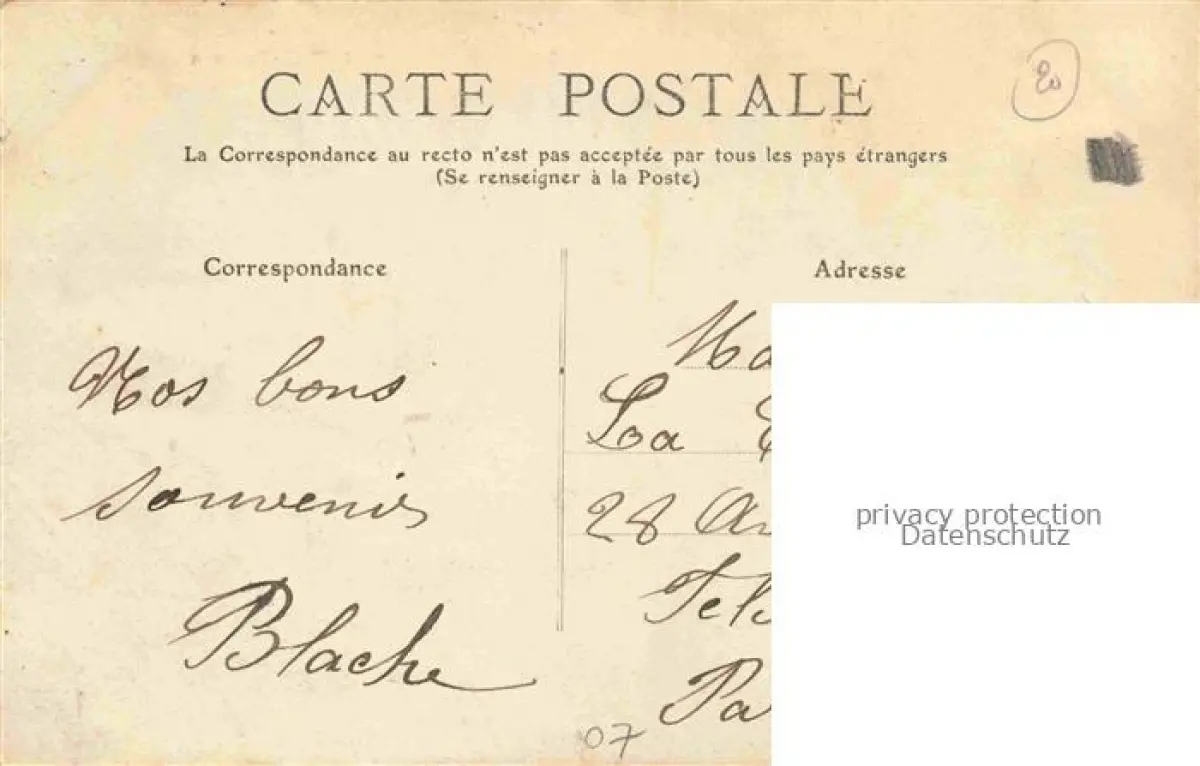 CARTE POSTALE
20
La Correspondance au recto n'est pas acceptée par tous les pays étrangers
(Se renseigner à la Poste)
Correspondance
Adresse
Nos bons
souvenirs
Blache
La
28
07
privacy protection
Datenschutz